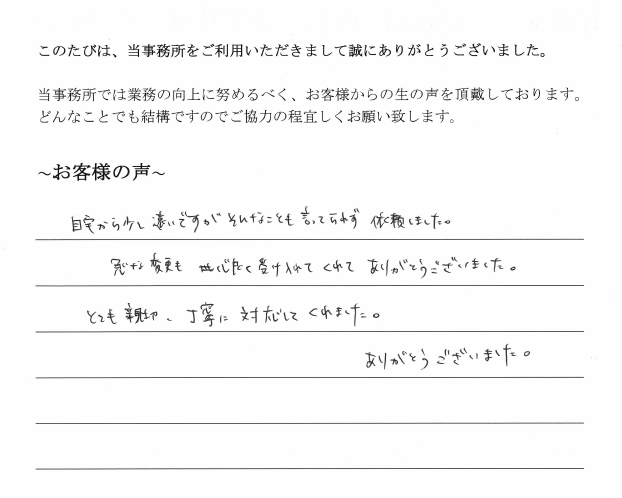 このたびは、当事務所をご利用いただきまして誠にありがとうございました。
当事務所では業務の向上に努めるべく、お客様からの生の声を頂戴しております。
どんなことでも結構ですのでご協力の程宜しくお願い致します。
~お客様の声~
自宅から少し遠いですがそんなことも言ってられず 依頼しました。
急な変更も 快く受け入れて くれて ありがとうございました。
とても親切、丁寧に 対応して くれました。
ありがとうございました。